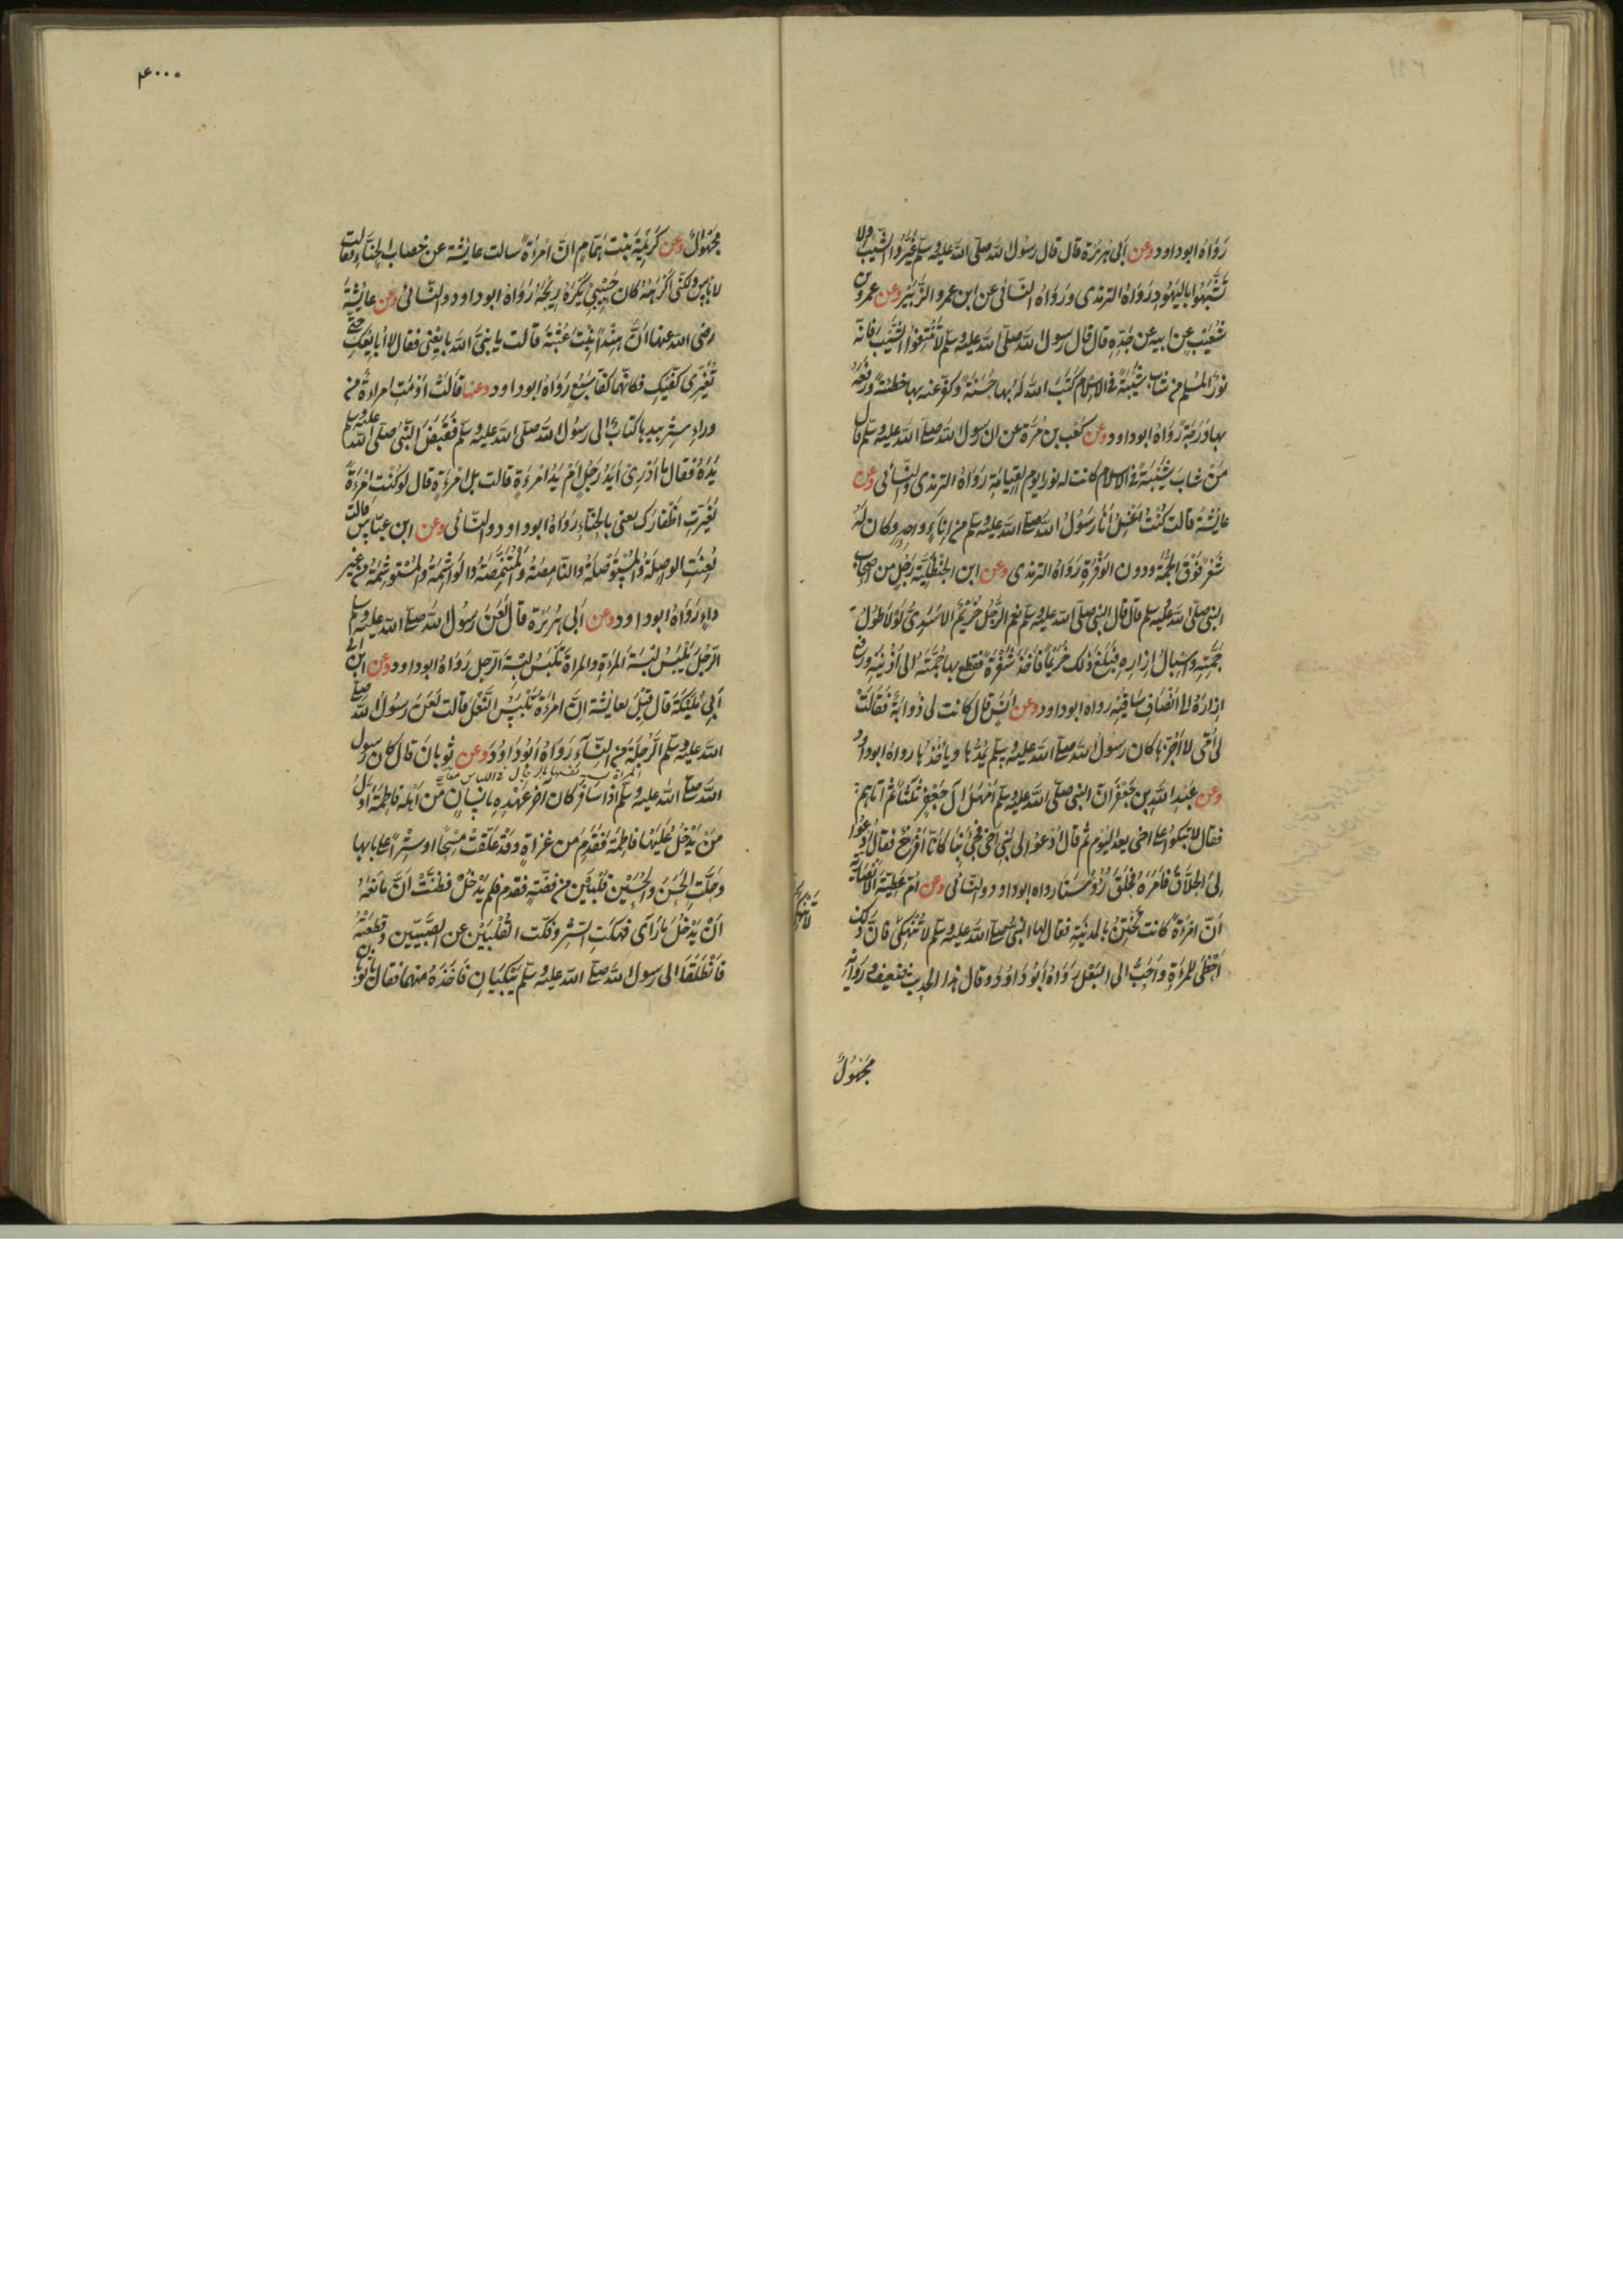 رَوَاهُ ابو داود وعن أبى هريرة قال قال رسول الله صلى الله عليه وسلم غَيِّرُوا الشيب ولا
تَشَبَّهُوا باليهود رَوَاهُ الترمذى وَرَوَاهُ النسائى عن ابن عمرو الزبير وعن عمرو بن
شُعَيْبٍ عن ابيه عن جَدِّهِ قال قال رسول الله صلى الله عليه وسلم لا تَنْتِفُوا الشَّيْبَ فانه
نورُ المُسْلِم من شاب شَيْبَةً فى الاسلام كَتَبَ الله له بها حَسَنَةً وكفر عنه بها خطئة ورفعه
بها دَرَجَةً رَوَاهُ ابو داود وعن كَعْب بن مُرَّة عن ان رسول الله صلى الله عليه وسلم قال
مَنْ شابَ شَيْبَةً فى الاسلام كانت له نورا يوم القيامة رَوَاهُ الترمذى والنسائى وعن
عايشة قالت كُنْتُ اغْتَسِلُ أنا ورَسُولُ الله صلى الله عليه وسلم من إناءٍ واحِدٍ وكان لَهُ
شَعْرٌ فَوْقَ الجُمَّة ودون الوَفْرَةِ رَوَاهُ الترمذى وعن ابن الحنظلية رَجُلٍ من اصحاب
النبى صلى الله عليه وسلم قال قال النبى صلى الله عليه وسلم نعم الرَّجُلُ خُرَيْمٌ الاَسَدِىُّ لَوْلا طُولُ
جُمَّتِهِ وإِسْبَالُ إِزارِهِ فبَلَغَ ذلك خُرَيْمًا فأخَذَ شَفْرَةً فقطع بها جُمَّتَهُ الى أُذُنَيْهِ ورفع
إِزارَهُ الى أنْصَافِ ساقَيْهِ رواه ابو داود وعن أنسٍ قال كانت لى ذُوابَةٌ فَقَالَتْ
لى أُمّى لا أجُزّها كان رَسُولُ الله صلى الله عليه وسلم يَمُدُّها ويأخُذُها رواه ابو داود
وعن عبد الله بن جَعْفَرٍ انَّ النبى صلى الله عليه وسلم أمْهَلَ آلَ جَعْفَرٍ ثلثًا ثم أتاهم
فقال لا تَبْكُوا على اخى بعد اليَوْم ثم قال ادعوا لى بَنِى اَخِى فجئ بنا كأنّا أفْرُخٌ فقال ادعوا
لِى الحَلاَّقَ فأمَرَهُ فحَلَقَ رُؤُسَنا رواه ابو داود والنسائى وعن أُمّ عطيةَ الأنصارية
أنَّ امْرَأةً كانت تَخْتِنُ بالمدينة فقال لها النبى صلى الله عليه وسلم لا تُنْهِكِى فانَّ ذلك
أحْظَى للمرأةِ وأحَبُّ الى البَعْل رَوَاهُ أبُو دَاوُدَ وقال هذا الحديث ضعيف وَرَاويه
مجَهُولٌ
٤٠٠٠
مجَهُولٌ وعن كَرِيمَةَ بنت هَمَّامٍ انّ امْرَأةً سالت عايشة عن خضاب الحِنَّاءِ فقالت
لا بأسَ ولكنّى أكْرَهُهُ كان حَبِيبِى يَكْرَهُ رِيحَهُ رَوَاهُ ابو داود والنسائى وعن عايشة
رضى الله عنها أنّ هِنْداً بِنْتَ عُتْبَةَ قالت يا نبىَّ الله بايِعْنى فقال لا أُبايِعُكِ حتى
تُغَيِّرِى كَفَّيْكِ فكأنَّهما كَفّا سَبُعٍ رَوَاهُ ابو داود وعنها قالَتْ أوْمَتِ امراءةٌ من
وراءِ سِتْرٍ بيدها كتابٌ الى رسُولِ الله صلى الله عليه وسلم فقَبَضَ النَّبىُّ صلى الله عليه وسلم
يَدَهُ فقال ما أدْرِى أيَدُ رَجُلٍ أمْ يَدُ امْرءةٍ قالت بل امْرءةٍ قال لو كُنْتِ امْرَءَةً
لغَيَّرْتِ أظْفارَك يعنى بالحِنَّاءِ رَوَاهُ ابو داود والنسائى وعن ابن عبّاسٍ قالت
لُعِنَتِ الواصِلَةُ والمُسْتَوْصِلَةُ والنّامِصَةُ والمُتَنَمِّصَةُ والوَاشِمَةُ والمُسْتَوْشِمَةُ من غير
داءٍ رَوَاهُ ابو داود وعن أبى هريرة قال لَعَنَ رَسُولُ الله صلى الله عليه وسلم
الرَّجُلَ يَلْبَسُ لِبْسَةَ المَرْءَةِ والمراةَ تَلْبَسُ لِبْسَةَ الرَّجلِ رَوَاهُ ابو داود وعن ابن
أبى مُلَيْكَةَ قال قِيلَ لعايشة انَّ امْرءةً تَلْبَسُ النَّعْلَ قالت لَعَنَ رَسُولُ الله صلى
الله عليه وسلم الرَّجُلَةَ من النِّسَآءِ رَوَاهُ أبُو دَاوُدَ وعن ثوبانَ قال كان رسول
الله صلى الله عليه وسلم اذا سافَرَ كان آخر عَهْدِهِ بإنسانٍ من أهْلِهِ فاطِمَةَ وأوّلُ
مَنْ يَدْخُلُ عَلَيْها فاطِمَةَ فقَدِمَ من غزاةٍ وقَدْ عَلَّقَتْ مِسْحًا او سِتْراً على بابها
وحَلَّتِ الحَسَنَ والحُسَيْنَ قُلْبَيْنِ من فضّةٍ فقدم فلم يَدْخُلْ فظنَّتْ انَّ ما مَنَعَهُ
أنْ يَدْخُلَ ما رَأى فهتكتِ السِّتْرَ وفكّت القُلْبَيْنِ عن الصَّبِيَّيْنِ وقَطَعَتْهُ
فانْطَلَقَا الى رسول الله صلى الله عليه وسلم يَبْكِيَانِ فأخَذَهُ منهما فقال يا ثوبان